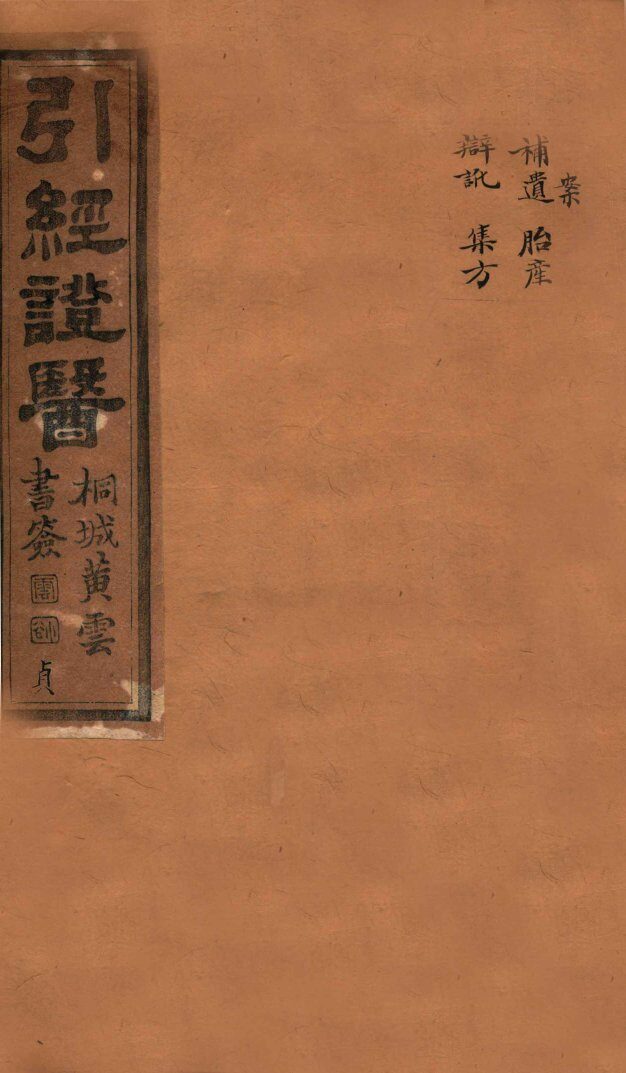 案
補遺 胎産
辯訛 集方
引經證醫
桐城黄雲
書簽
貞